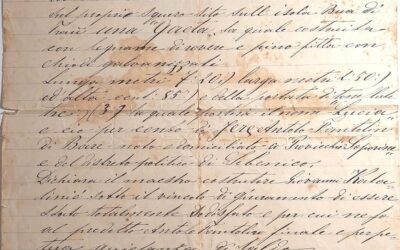 nel proprio Squero sito sull'isola Bua di
Traù una "Gaeta" la quale costruita
con legname di rovere e pino fitta con
chiodi galvanizzati
Lunga metri 7.20 larga metri 2.50
ed alta cent. 85 e della portata di tonn.
tre (3) la quale porta il nome "Lucia"
e ciò per conto di fere Antolo
di Bore nato e domiciliato a
e del distretto politico di Sebenico;
Dichiara il maestro costruttore Giovanni
sotto il vincolo di giuramento di essere
stato totalmente soddisfatto e per cui ne fa
al predetto Antolo finale e perpe